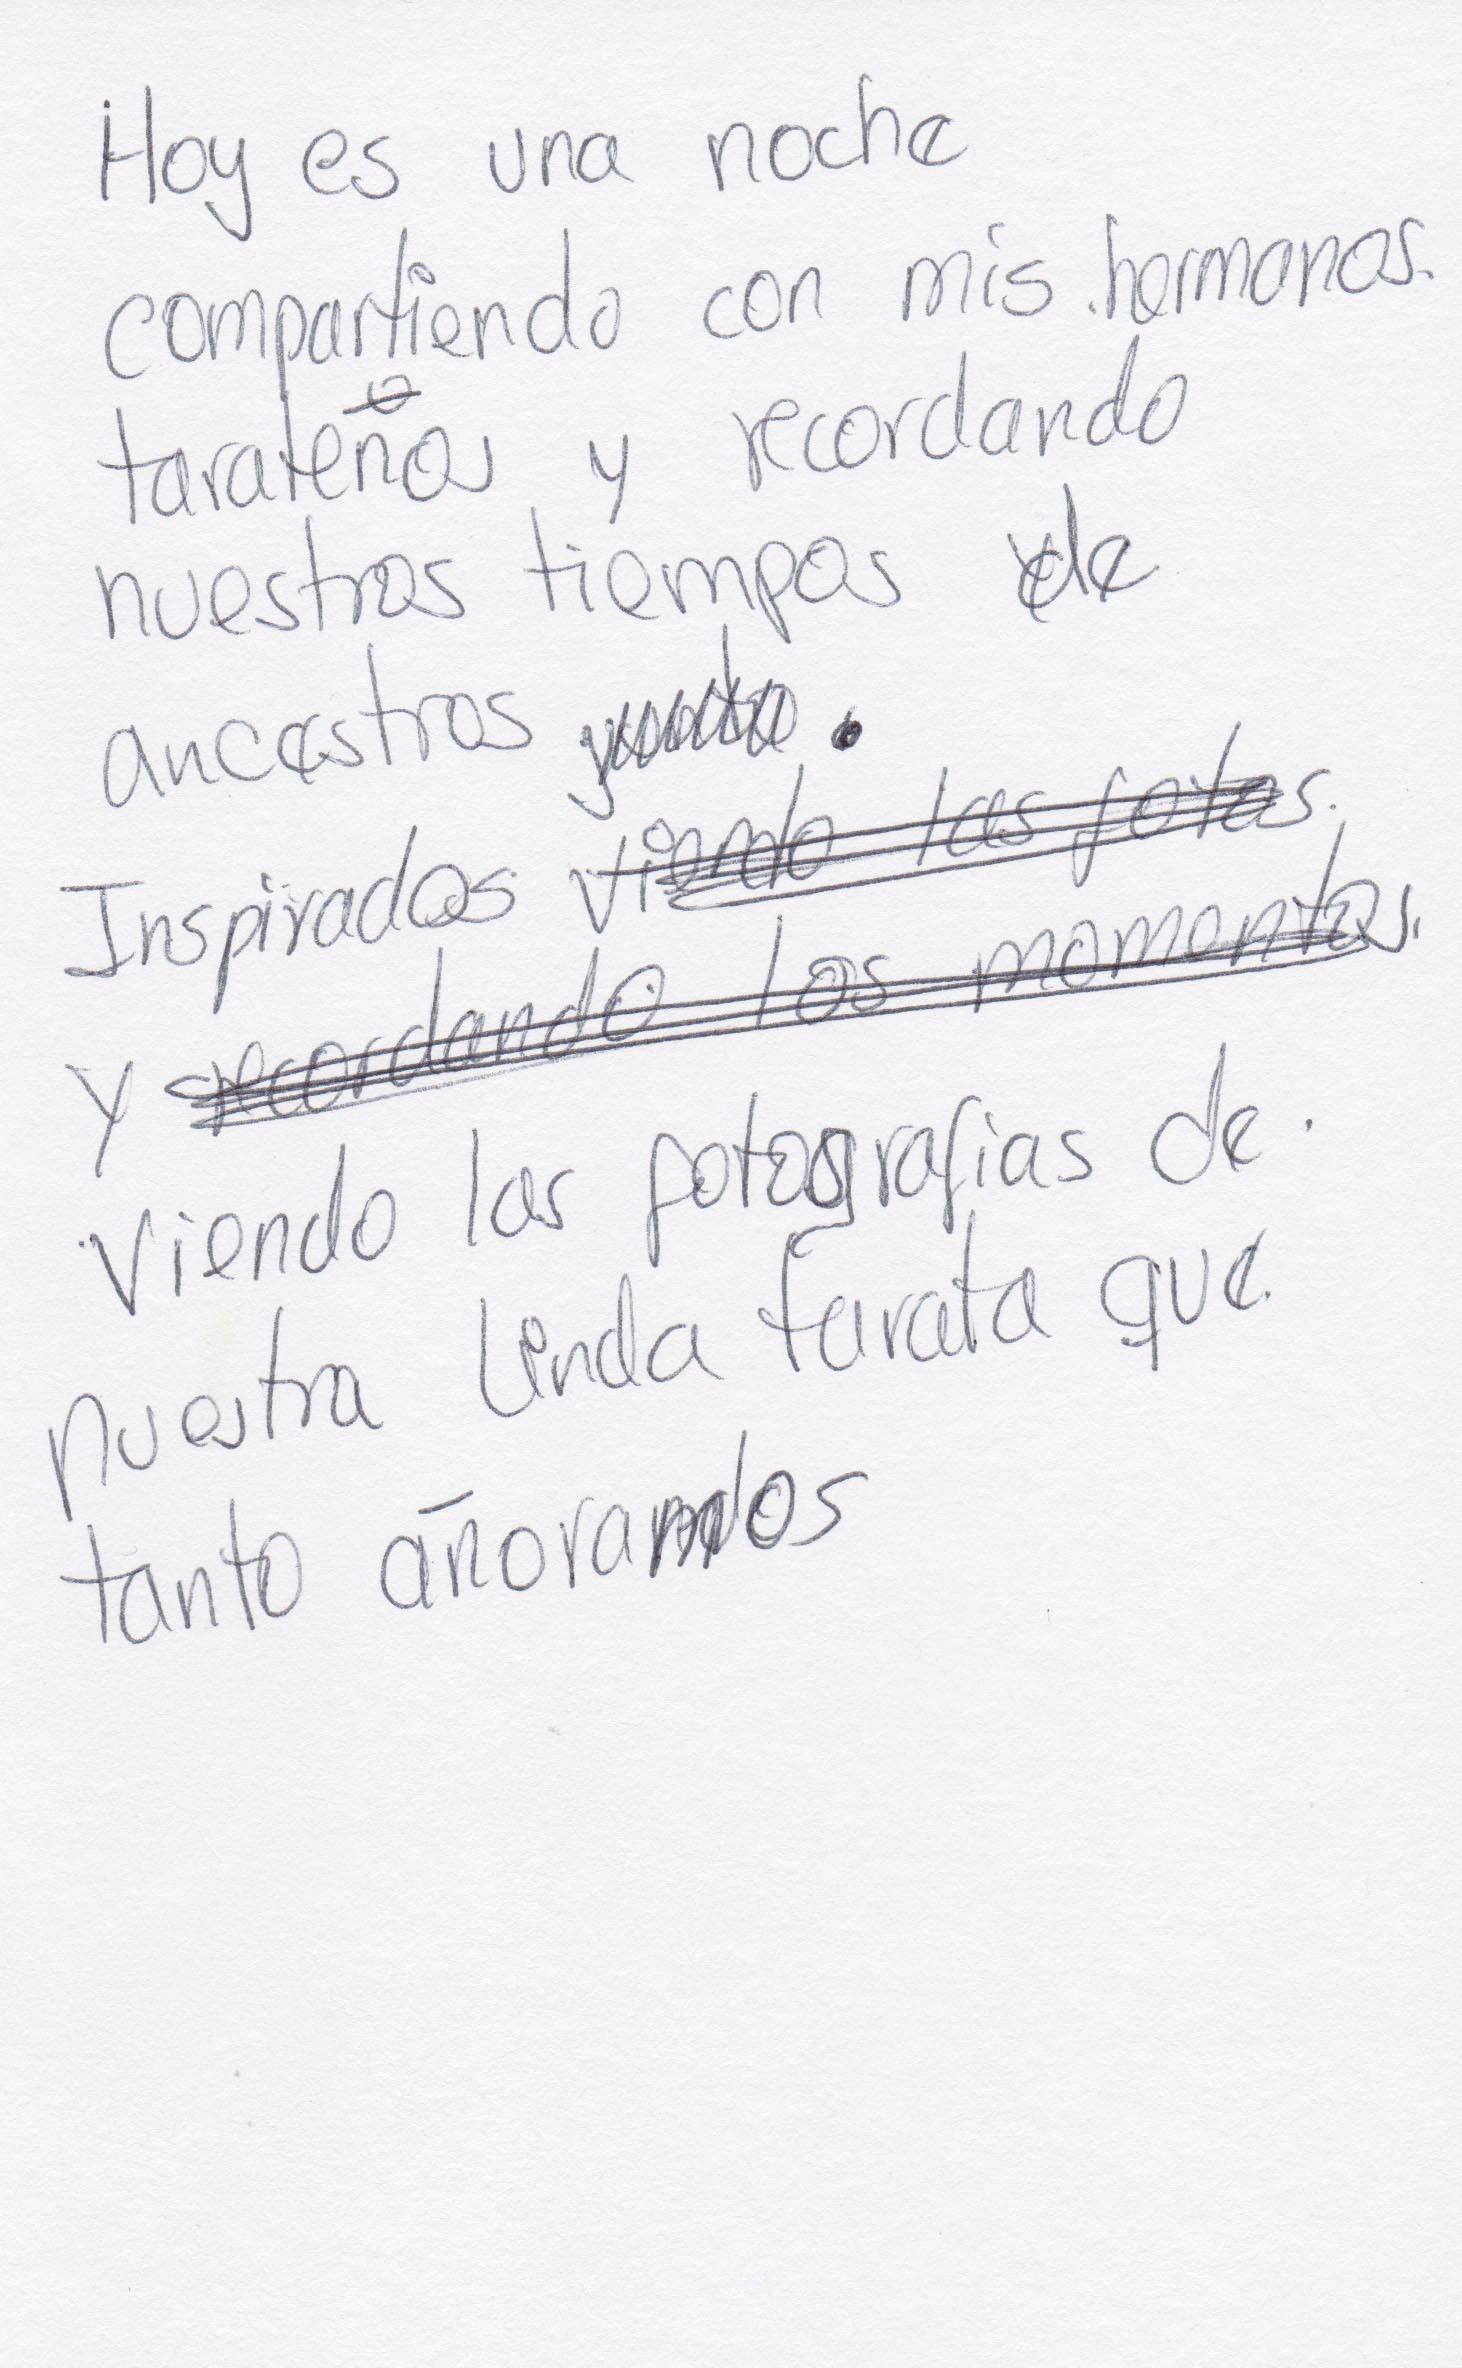 Hoy es una noche
compartiendo con mis hermanos.
tarateños y recordando
nuestros tiempos de
ancestros .
Inspirados viendo las fotos.
y recordando los momentos.
viendo las fotografias de.
nuestra linda tarata que
tanto añorandos